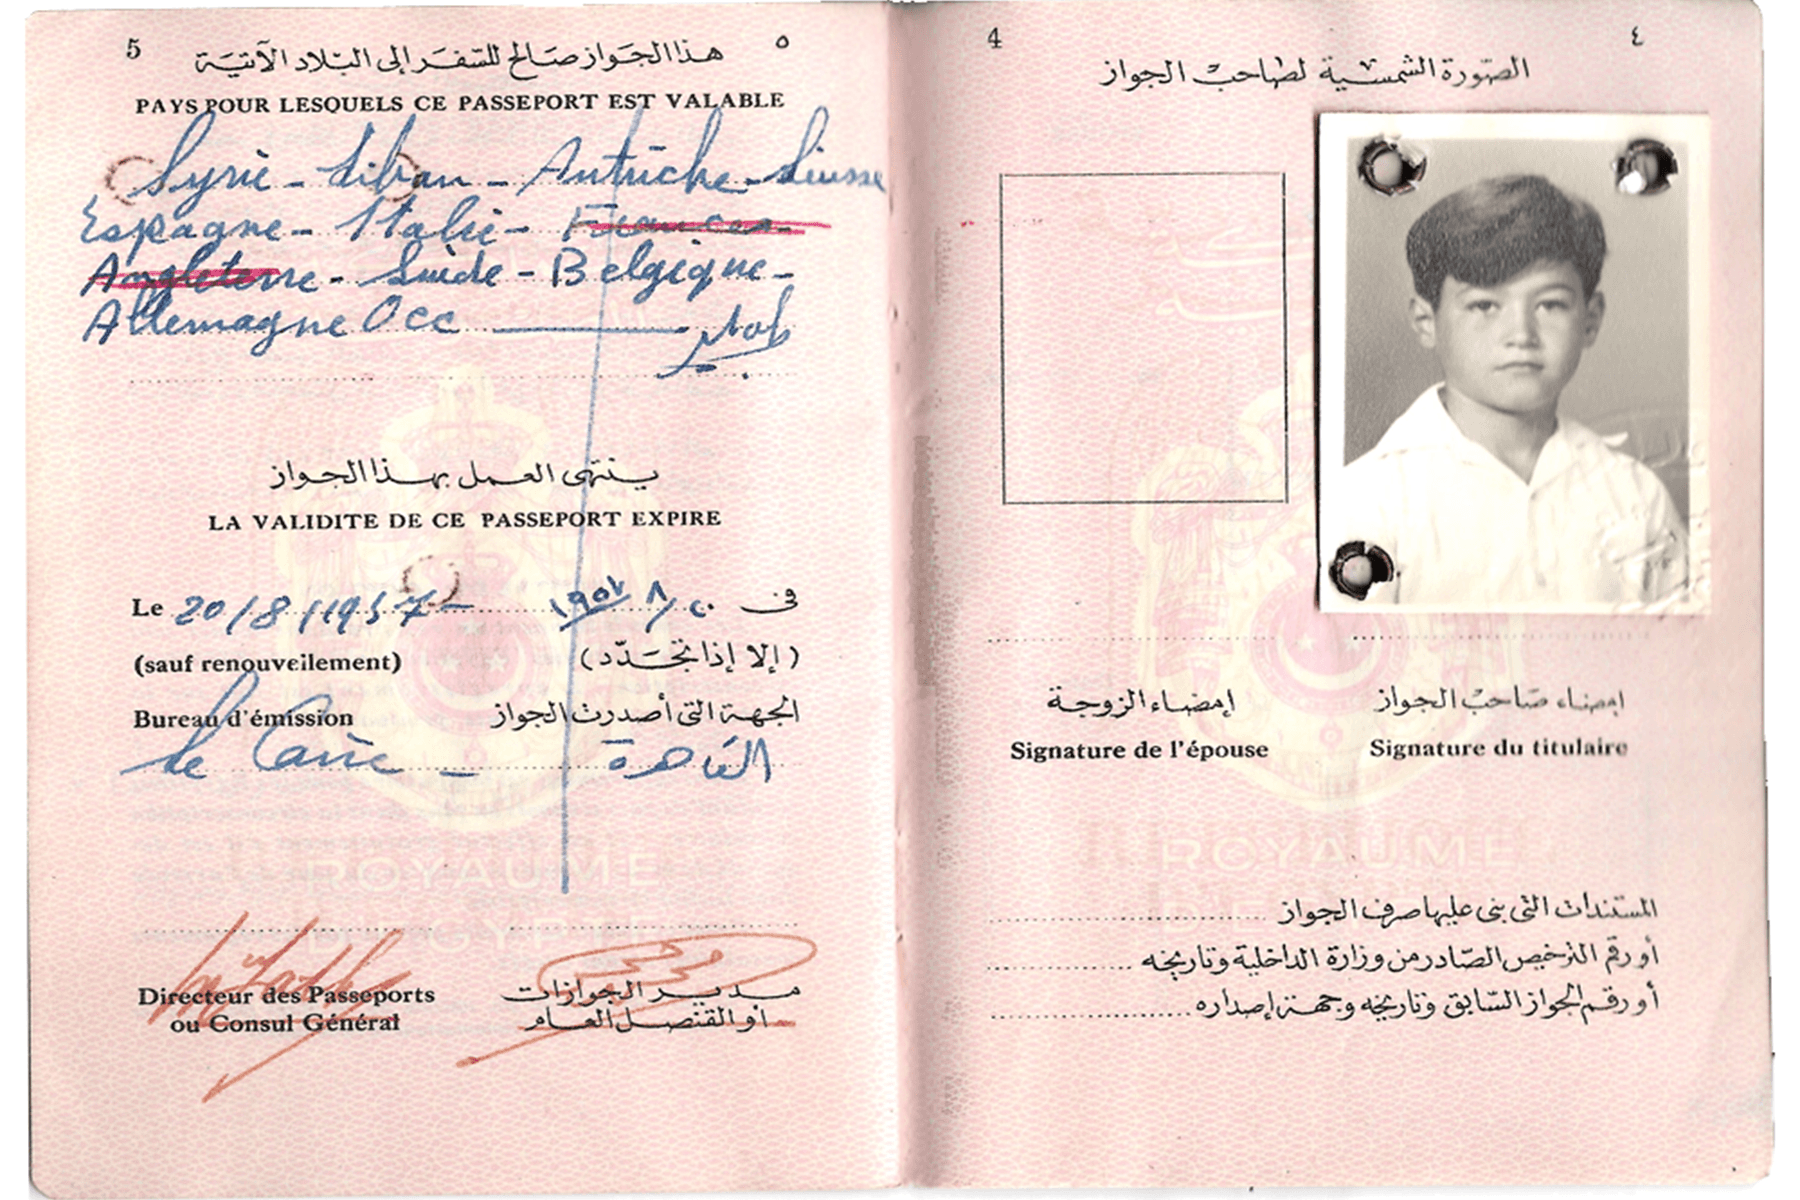 5 ٥
هذا الجواز صالح للسفر إلى البلاد الآتية
PAYS POUR LESQUELS CE PASSEPORT EST VALABLE
Syrie - Liban - Autriche - Suisse
Espagne - Italie -
Angleterre - Suède - Belgique -
Allemagne Occ
ينتهى العمل بهذا الجواز
LA VALIDITE DE CE PASSEPORT EXPIRE
Le 20/8/1957 - ١٩٥٧/٨/٢٠ فى
(sauf renouveilement) (إلا إذا تجدّد)
Bureau d'émission الجهة التى أصدرت الجواز
Le Caire - القاهرة
ROYAUME
D'EGYPTE
Directeur des Passeports مدير الجوازات
ou Consul Général أو القنصل العام
4 ٤
الصورة الشمسية لصاحب الجواز
إمضاء الزوجة إمضاء صاحب الجواز
Signature de l'épouse Signature du titulaire
ROYAUME
D'E
المستندات التى بنى عليها صرف الجواز
أو رقم الترخيص الصادر من وزارة الداخلية وتاريخه
أو رقم الجواز السابق وتاريخه وجهة إصداره